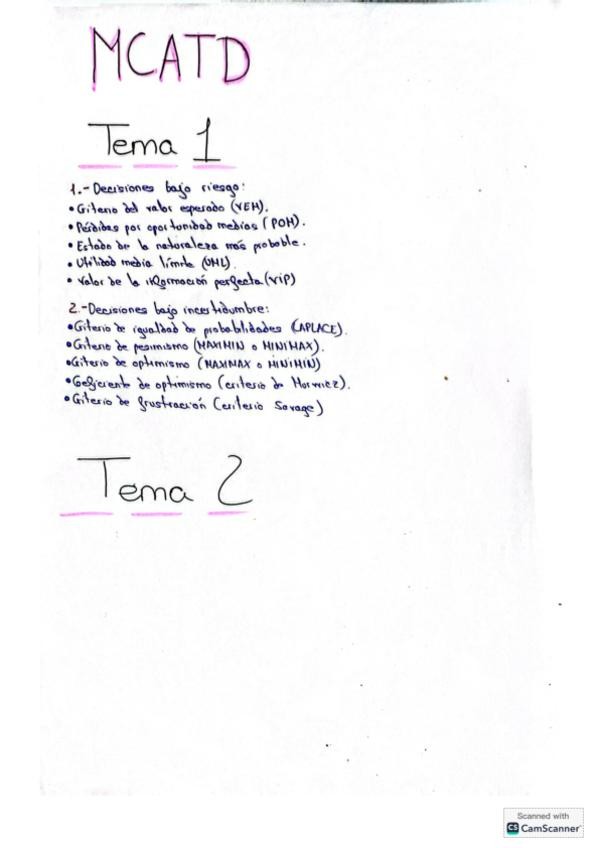 MCATD
Tema 1
1.- Decisiones bajo riesgo:
• Criterio del valor esperado (VEM).
• Pérdidas por oportunidad medias (POM).
• Estado de la naturaleza más probable.
• Utilidad media límite (UML).
• Valor de la información perfecta (VIP)
2.- Decisiones bajo incertidumbre:
• Criterio de igualdad de probabilidades (LAPLACE).
• Criterio de pesimismo (MAXIMIN o MINIMAX).
• Criterio de optimismo (MAXIMAX o MINIMIN)
• Coeficiente de optimismo (criterio de Horwicz).
• Criterio de frustración (criterio Savage)
Tema 2
Scanned with
CS CamScanner